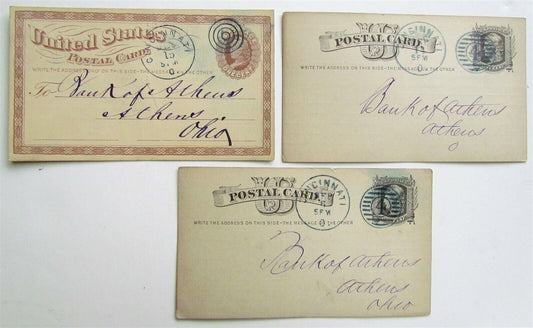 United States
POSTAL CARD
WRITE THE ADDRESS ONLY ON THIS SIDE - THE MESSAGE ON THE OTHER
To Bank of Athens
Athens
Ohio
POSTAL CARD
WRITE THE ADDRESS ON THIS SIDE - THE MESSAGE ON THE OTHER
5 PM
O
Bank of Athens
Athens
POSTAL CARD
WRITE THE ADDRESS ON THIS SIDE - THE MESSAGE ON THE OTHER
CINCINNATI
5 PM
O
Bank of Athens
Athens
Ohio